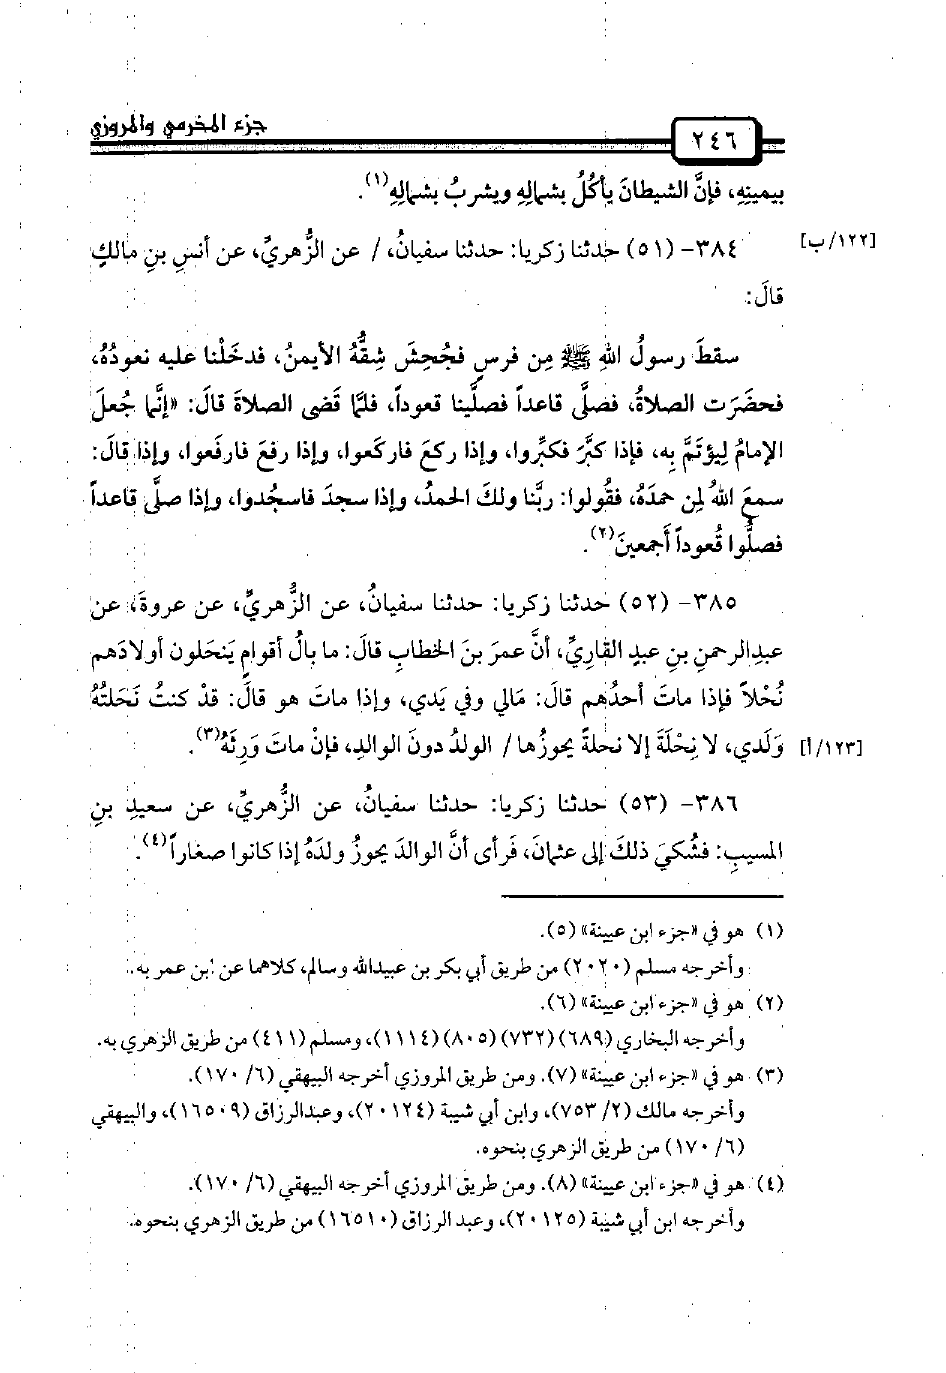 جزء المخرمي والمروزي
٢٤٦
بيمينِه، فإنَّ الشيطانَ يأكُلُ بشمالِهِ ويشربُ بشمالِهِ(١).
[١٢٢/ب]
٣٨٤- (٥١) حدثنا زكريا: حدثنا سفيانُ، / عن الزُّهريِّ، عن أنسِ بنِ مالكٍ
قالَ:
سقطَ رسولُ اللهِ ﷺ مِن فرسٍ فجُحِشَ شِقُّهُ الأيمنُ، فدخَلْنا عليه نعودُهُ،
فحضَرَت الصلاةُ، فصلَّى قاعداً فصلَّينا قعوداً، فلمَّا قَضى الصلاةَ قالَ: «إنَّما جُعلَ
الإمامُ لِيؤتَمَّ بِه، فإذا كبَّرَ فكبِّروا، وإذا ركعَ فاركَعوا، وإذا رفعَ فارفَعوا، وإذا قالَ:
سمعَ اللهُ لمِن حمدَهُ، فقُولوا: ربَّنا ولكَ الحمدُ، وإذا سجدَ فاسجُدوا، وإذا صلَّى قاعداً
فصلُّوا قُعوداً أَجمعينَ(٢).
٣٨٥- (٥٢) حدثنا زكريا: حدثنا سفيانُ، عن الزُّهريِّ، عن عروةَ، عن
عبدِالرحمنِ بنِ عبدٍ القاريِّ، أنَّ عمرَ بنَ الخطابِ قالَ: ما بالُ أقوامٍ يَنحَلون أولادَهم
نُحْلاً فإذا ماتَ أحدُهم قالَ: مَالي وفي يَدي، وإذا ماتَ هو قالَ: قدْ كنتُ نَحَلتُهُ
وَلَدي، لا نِحْلَةَ إلا نحلةً يحوزُها / الولدُ دونَ الوالدِ، فإنْ ماتَ وَرِثَهُ(٣).
[١٢٣/أ]
٣٨٦- (٥٣) حدثنا زكريا: حدثنا سفيانُ، عن الزُّهريِّ، عن سعيدِ بنِ
المسيبِ: فشُكيَ ذلكَ إلى عثمانَ، فَرأى أنَّ الوالدَ يحوزُ ولدَهُ إذا كانوا صغاراً(٤).
(١) هو في «جزء ابن عيينة» (٥).
وأخرجه مسلم (٢٠٢٠) من طريق أبي بكر بن عبيدالله وسالم، كلاهما عن ابن عمر به.
(٢) هو في «جزء ابن عيينة» (٦).
وأخرجه البخاري (٦٨٩) (٧٣٢) (٨٠٥) (١١١٤)، ومسلم (٤١١) من طريق الزهري به.
(٣) هو في «جزء ابن عيينة» (٧). ومن طريق المروزي أخرجه البيهقي (٦/ ١٧٠).
وأخرجه مالك (٢/ ٧٥٣)، وابن أبي شيبة (٢٠١٢٤)، وعبدالرزاق (١٦٥٠٩)، والبيهقي
(٦/ ١٧٠) من طريق الزهري بنحوه.
(٤) هو في «جزء ابن عيينة» (٨). ومن طريق المروزي أخرجه البيهقي (٦/ ١٧٠).
وأخرجه ابن أبي شيبة (٢٠١٢٥)، وعبد الرزاق (١٦٥١٠) من طريق الزهري بنحوه.